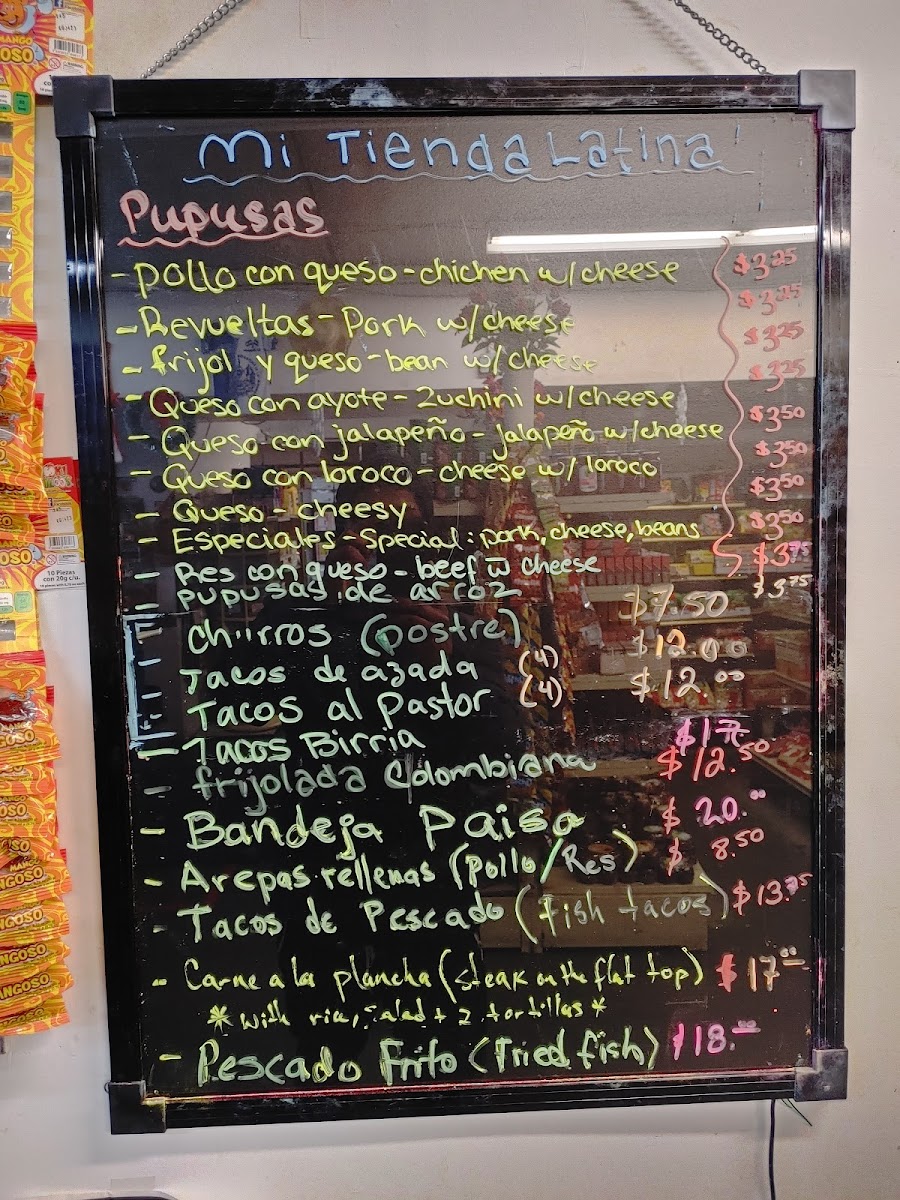 Mi Tienda Latina!
Pupusas
- Pollo con queso - chichen w/cheese $3.25
- Revueltas - Pork w/cheese $3.25
- frijol y queso - bean w/cheese $3.25
- Queso con ayote - Zuchini w/cheese $3.25
- Queso con jalapeño - jalapeño w/cheese $3.50
- Queso con loroco - cheese w/ loroco $3.50
- Queso - cheesy $3.50
- Especiales - Special: pork, cheese, beans $3.50
- Res con queso - beef w cheese $3.75
- pupusas de arroz $3.75
- Churros (postre) $7.50
- Tacos de azada (4) $12.00
- Tacos al Pastor (4) $12.00
- Tacos Birria $17
- frijolada Colombiana $12.50
- Bandeja Paisa $20.00
- Arepas rellenas (Pollo/Res) $8.50
- Tacos de Pescado (Fish tacos) $13.75
- Carne a la plancha (steak on the flat top) $17.00
* with rice, salad + 2 tortillas *
- Pescado Frito (Fried fish) $18.00
MANGO
10 Piezas
con 20g c/u.